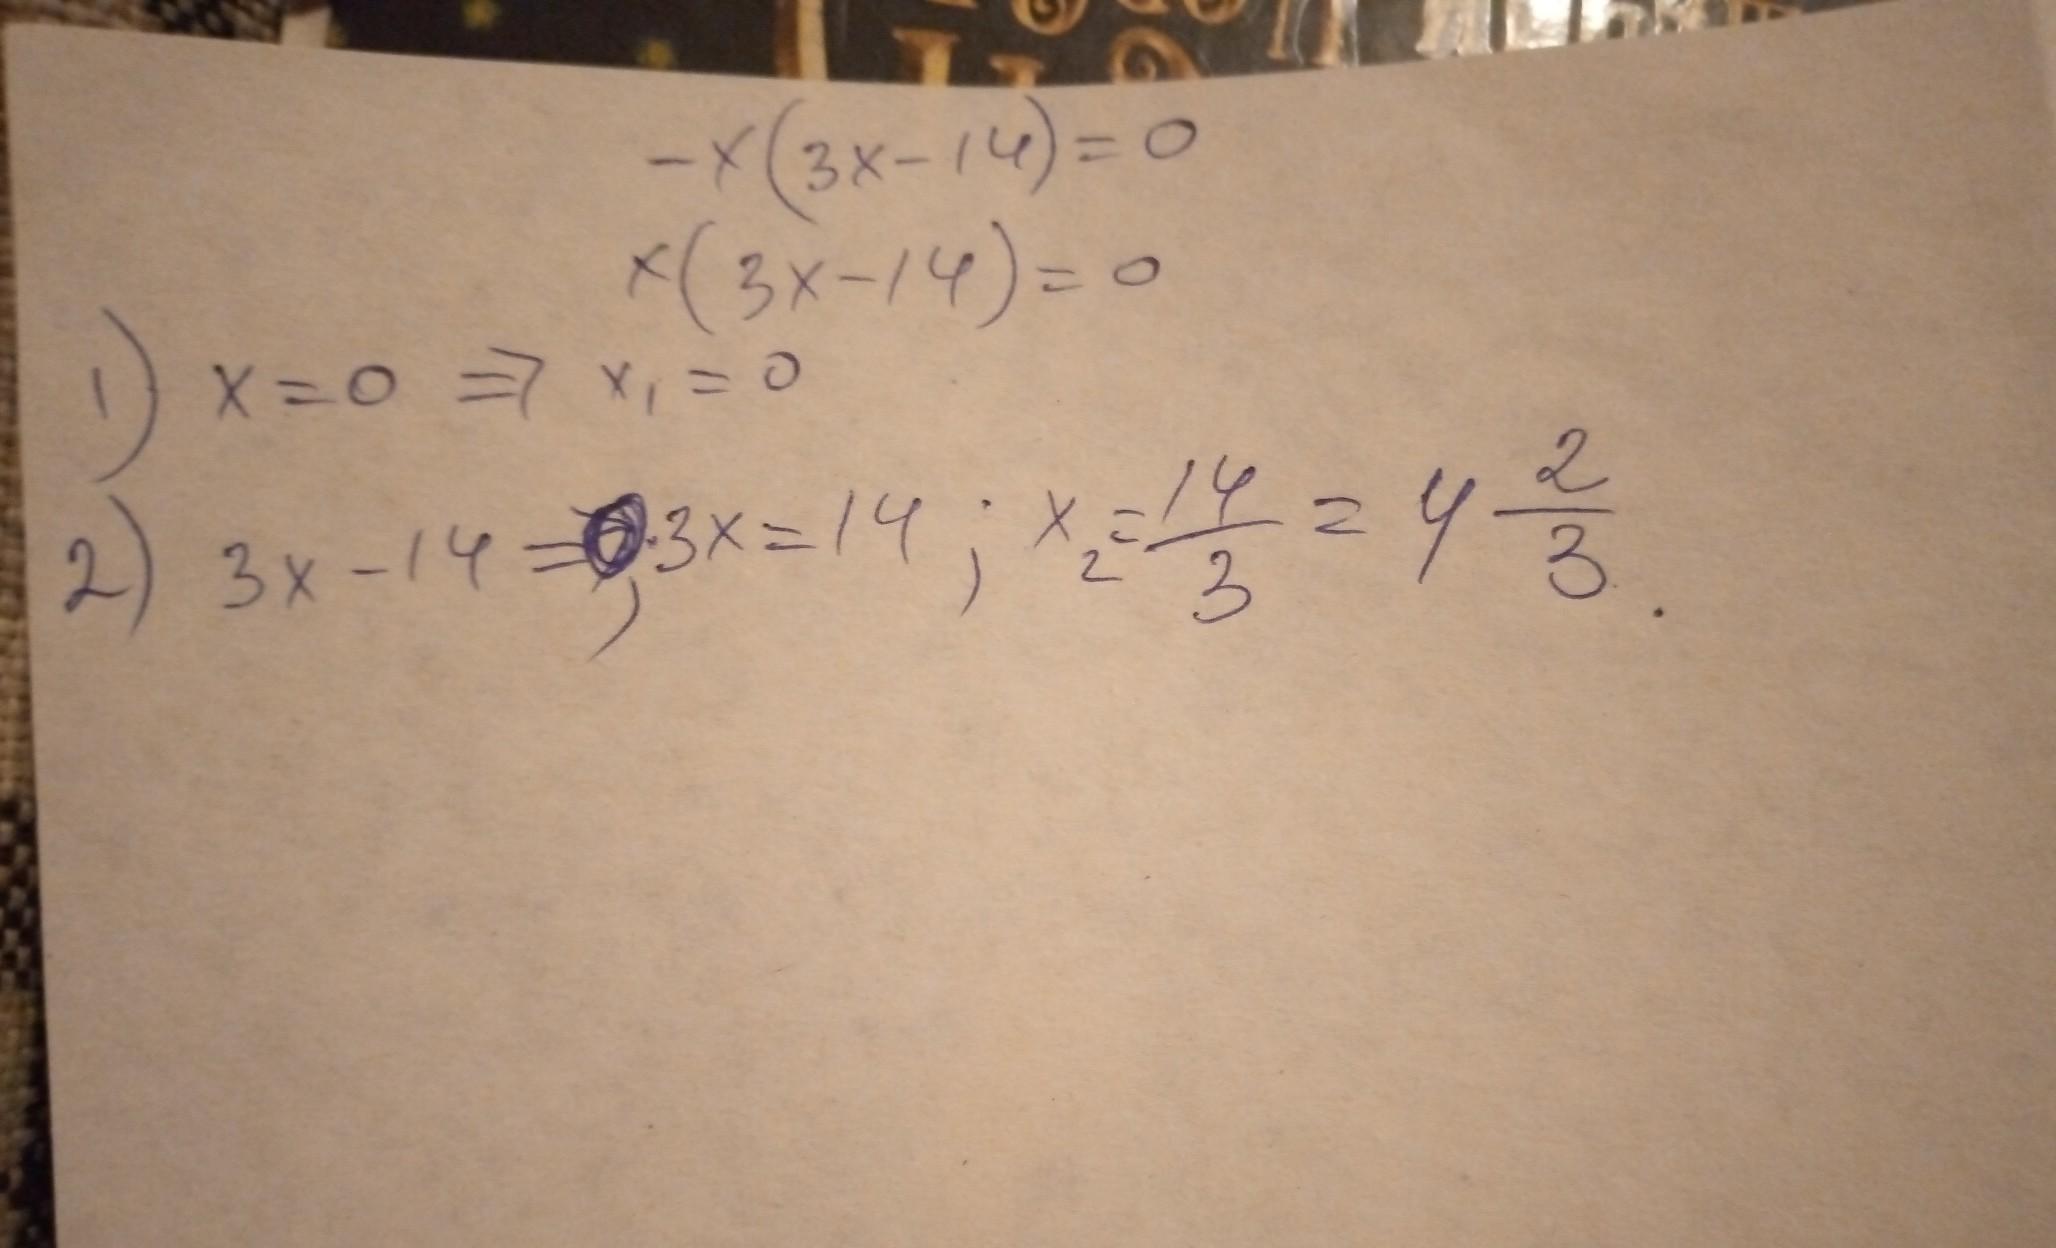 -x(3x-14)=0
x(3x-14)=0
1) x=0 ⇒ x₁=0
2) 3x-14=0; 3x=14; x₂=14/3=4 2/3.